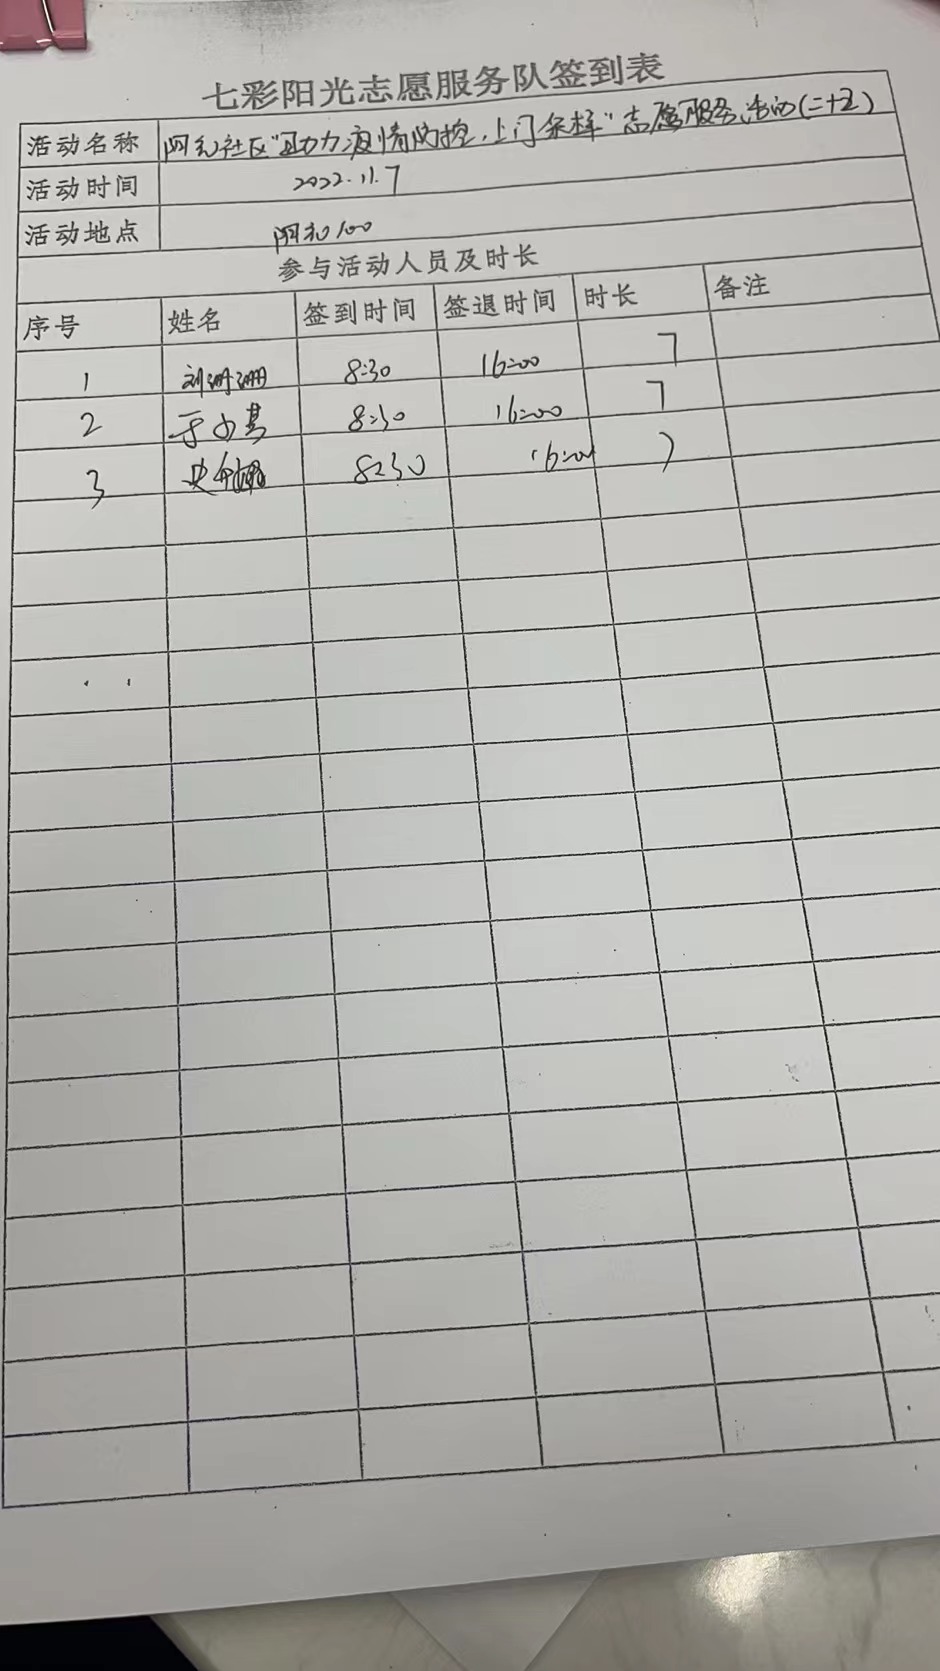 七彩阳光志愿服务队签到表
活动名称 社区"助力疫情防控,上门采样"志愿服务活动(二十
活动时间 2022.11.7
活动地点 100
参与活动人员及时长
序号 姓名 签到时间 签退时间 时长 备注
1 刘珊珊 8:30 16:00 7
2 8:30 16:00 7
3 史 8:30 16:00 7